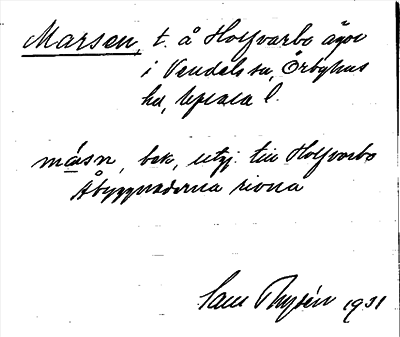 Marsen, t. å Holfvarbo ägor
i Vendels sn, Örbyhus
hd, Upsala l.
måsn, bek, utgj. till Holfvarbo
Åbyggnaderna rivna
Sam Thysén 1931